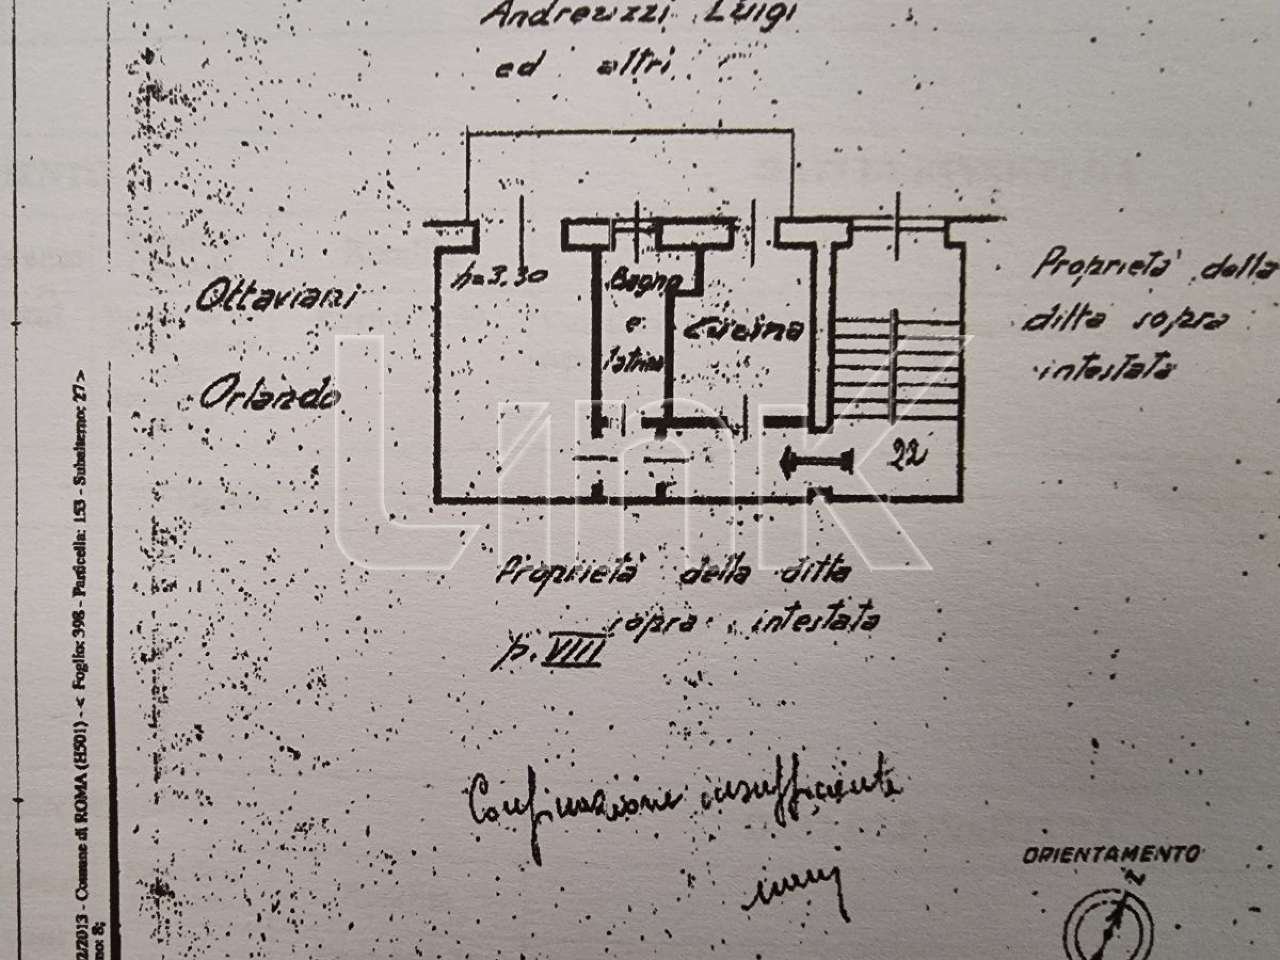 Andreuzzi Luigi
ed altri
h=3.30
Bagno
e
latrina
Cucina
22
Ottaviani
Orlando
Proprietà della
ditta sopra
intestata
Proprietà della ditta
sopra intestata
p. VIII
Confinazione insufficiente
ORIENTAMENTO
N
2/2013 - Comune di ROMA (H501) - < Foglio: 398 - Particella: 153 - Subalterno: 27 >
no: 8;
Link